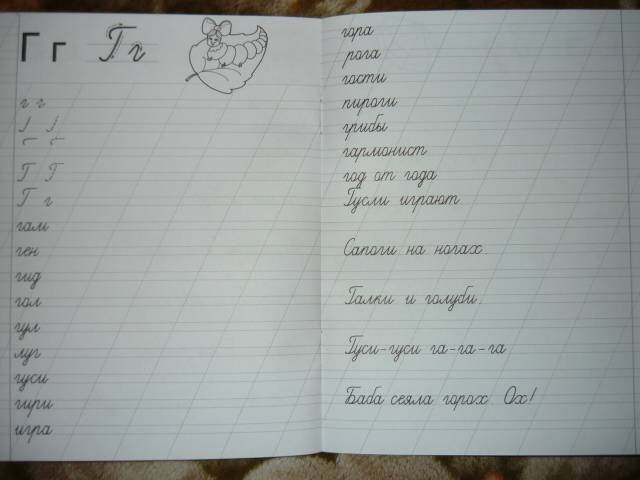 Г г Г г
г г
Г Г
Г г
гам
ген
гид
гол
гул
луг
гуси
гири
игра
гора
рога
гости
пироги
грибы
гармонист
год от года
Гусли играют.
Сапоги на ногах.
Галки и голуби.
Гуси-гуси га-га-га
Баба сеяла горох. Ох!